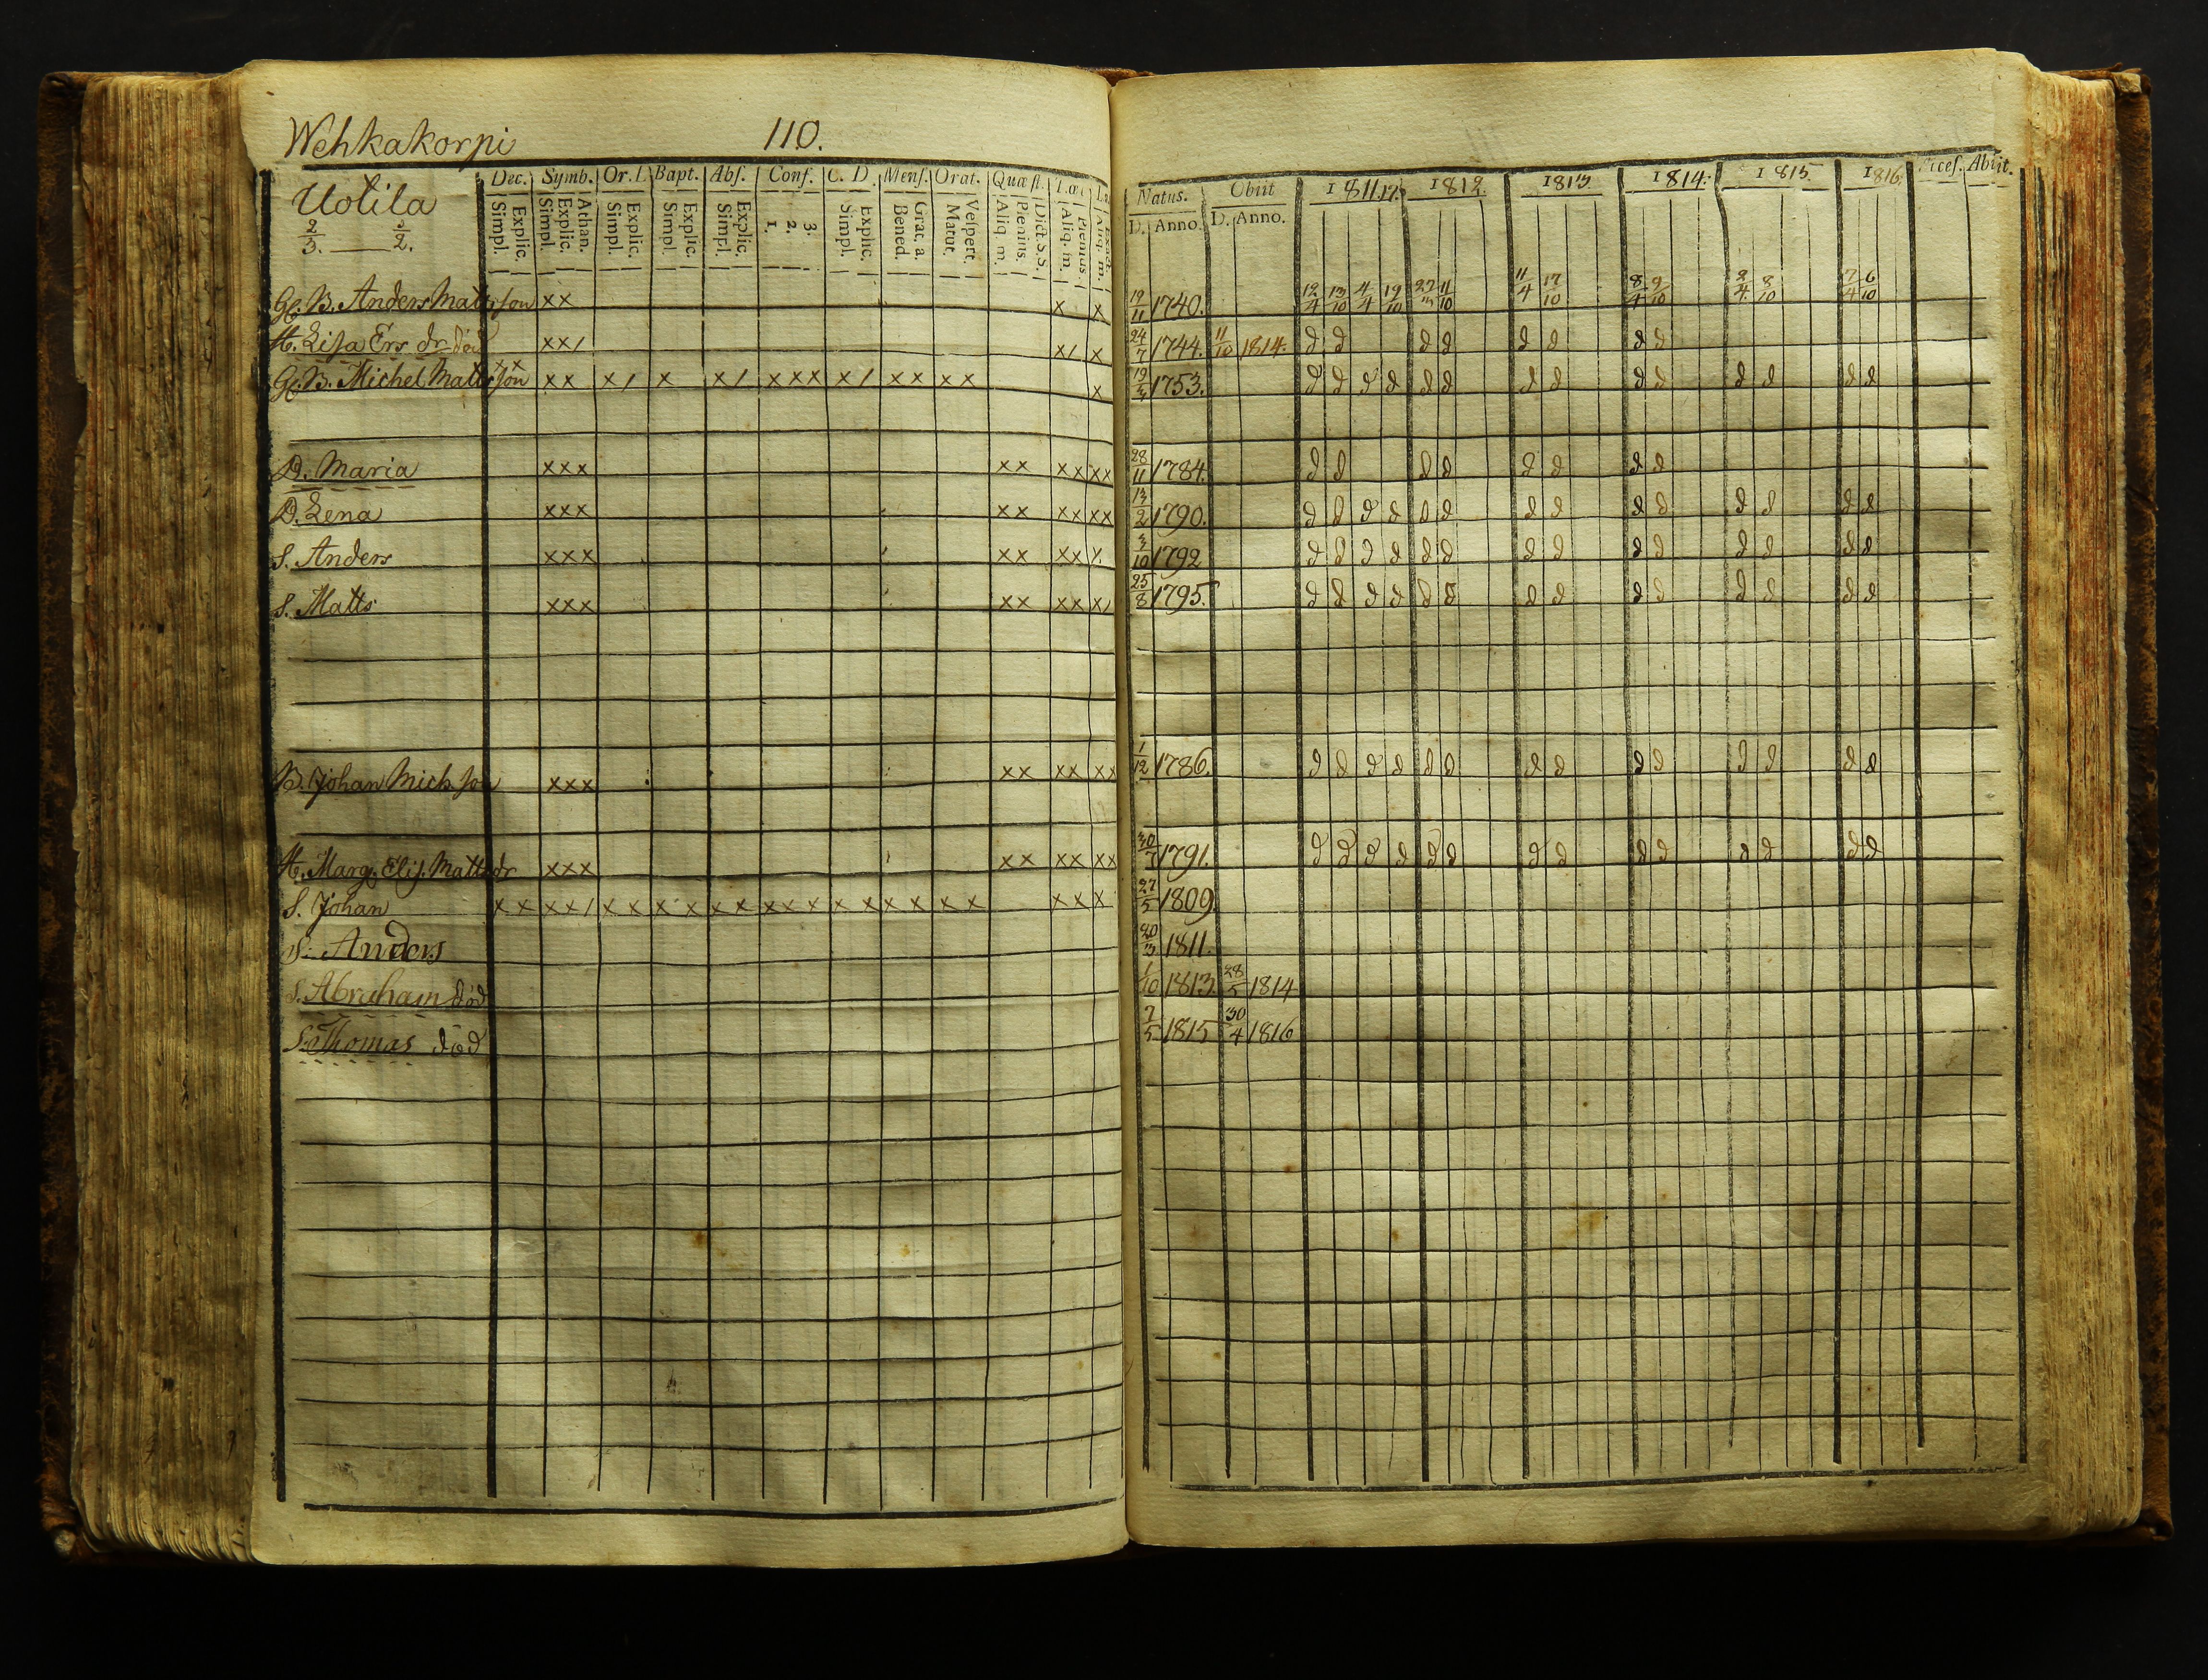 Wehkakorpi 110.
Uotila
2/3. 1/2.
Dec. Symb. Or. D. Bapt. Abs. Conf. C. D. Mens. Orat. Quæst.
Simpl. Explic. Simpl. Explic. Athan. Simpl. Explic. Simpl. Explic. Simpl. Explic. 1. 2. 3. Simpl. Explic. Bened. Grat. a. Matut. Vespert. Aliq. m. Plenius. Dict. S. S. Aliq. m. Plenius.
Natus. Obiit 1811.12. 1812. 1813 1814. 1815. 1816. Acces. Abiit.
D. Anno. D. Anno.
Gl. B. Anders Matts son xx x x 19/11 1740. 12/4 13/10 4/4 19/10 27/3 11/10 11/4 17/10 8/4 9/10 2/4 8/10 7/4 6/10
H. Lisa Ers dr död xx/ x/ x 24/7 1744. 11/10 1814. d d d d d d d d
Gl. B. Michel Matts son xx xx x/ x x/ xxx x/ xx xx x 19/3 1753. d d d d d d d d d d d d d d
D. Maria xxx xx xx xx 28/11 1784. d d d d d d d d
D. Lena xxx xx xx xx 13/2 1790. d d d d d d d d d d d d d d
S. Anders xxx xx xx x 3/10 1792 d d d d d d d d d d d d d d
S. Matts xxx xx xx x/ 25/8 1795. d d d d d d d d d d d d d d
B. Johan Mich. son xxx xx xx xx 1/12 1786. d d d d d d d d d d d d d d
H. Marg. Elis. Matts dr xxx xx xx xx 1791. d d d d d d d d d d d d d d
S. Johan xx xx/ xx xx xx xxx xx xx xx xx x 27/5 1809
S. Anders 20/3 1811.
S. Abraham död 1/10 1813. 28/5 1814
S. Thomas död 7/5 1815 30/4 1816